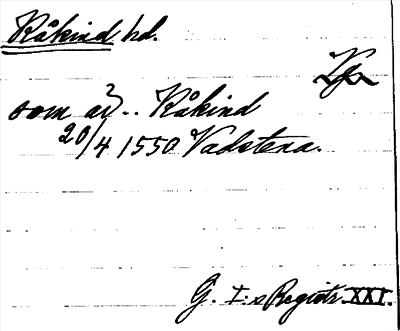 Råkind hd.
Vg.
som a3̷.. Råkind
20/4 1550 Vadstena.
G. I:s Registr. XXI.